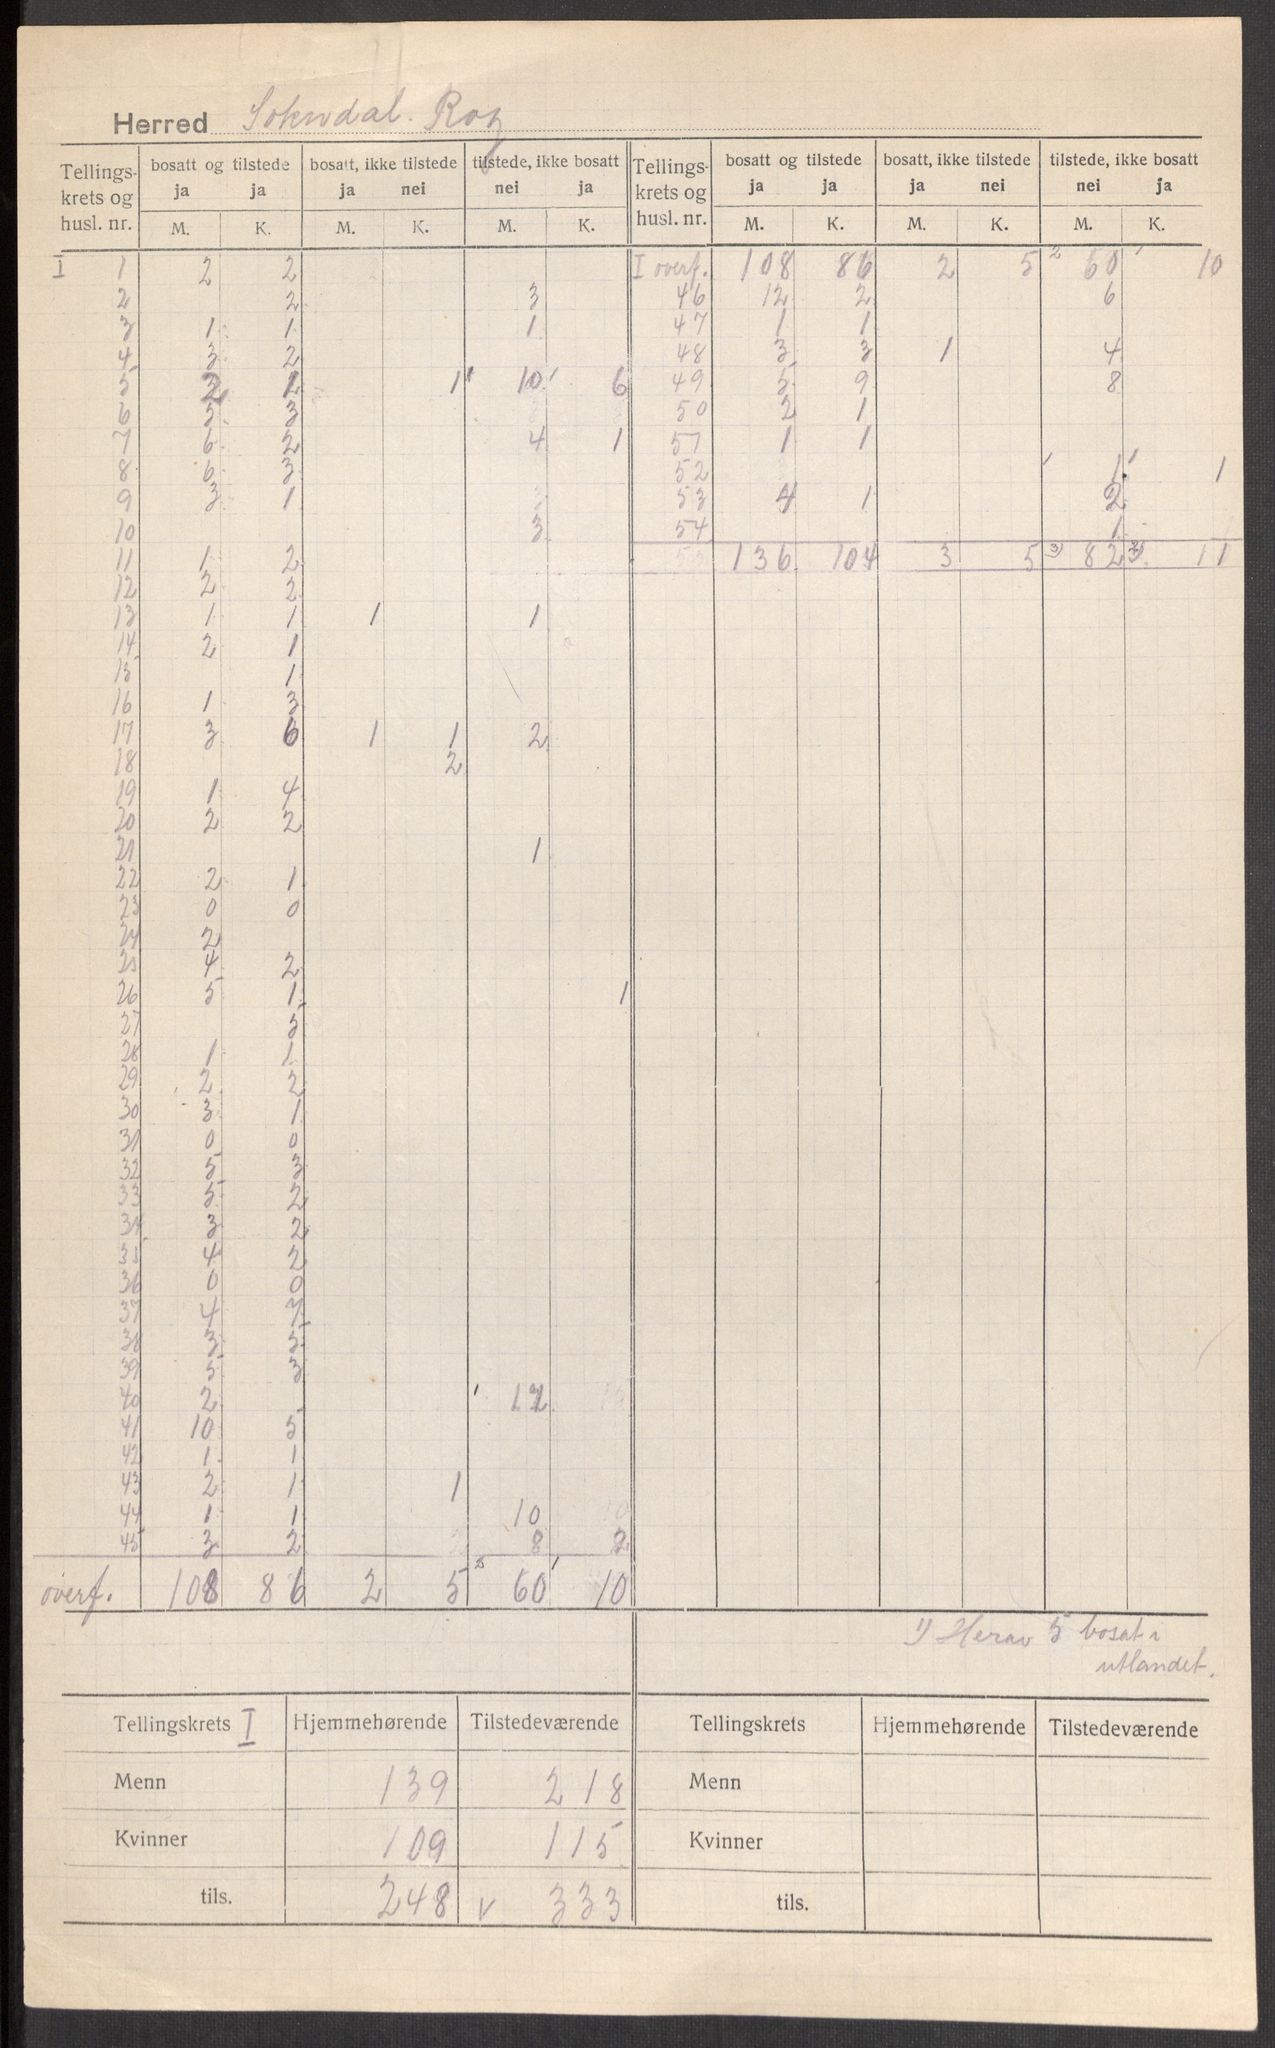 Herred Sokndal. Rog
Tellings-krets og husl. nr. | bosatt og tilstede ja ja | bosatt, ikke tilstede ja nei | tilstede, ikke bosatt nei ja | Tellings-krets og husl. nr. | bosatt og tilstede ja ja | bosatt, ikke tilstede ja nei | tilstede, ikke bosatt nei ja
M. K. M. K. M. K. M. K. M. K. M. K.
I 1 2 2
2 2 3
3 1 1 1
4 3 2
5 2 1 1 10 6
6 5 3
7 6 2 4 1
8 6 3
9 3 1
10 3
11 1 2
12 2 2
13 1 1 1 1
14 2 1
15 1
16 1 3
17 3 6 1 1 2
18 2
19 1 4
20 2 2
21 1
22 2 1
23 0 0
24 2
25 4 2
26 5 1 1
27 5
28 1 1
29 2 2
30 3 1
31 0 0
32 5 3
33 5 2
34 3 2
35 4 2
36 0 0
37 4 7
38 3 5
39 5 3
40 2 12
41 10 5
42 1 1
43 2 1 1
44 1 1 10
45 3 2 8 2
overf. 108 86 2 5 60 10
I overf. 108 86 2 5 60 10
46 12 2 6
47 1 1
48 3 3 1 4
49 5 9 8
50 2 1
51 1 1
52 1 1
53 4 1 2
54 1
55 136 104 3 5 3) 82 3) 11
1) Herav 5 bosat i
utlandet.
Tellingskrets I Hjemmehørende Tilstedeværende Tellingskrets Hjemmehørende Tilstedeværende
Menn 139 218 Menn
Kvinner 109 115 Kvinner
tils. 248 v 333 tils.